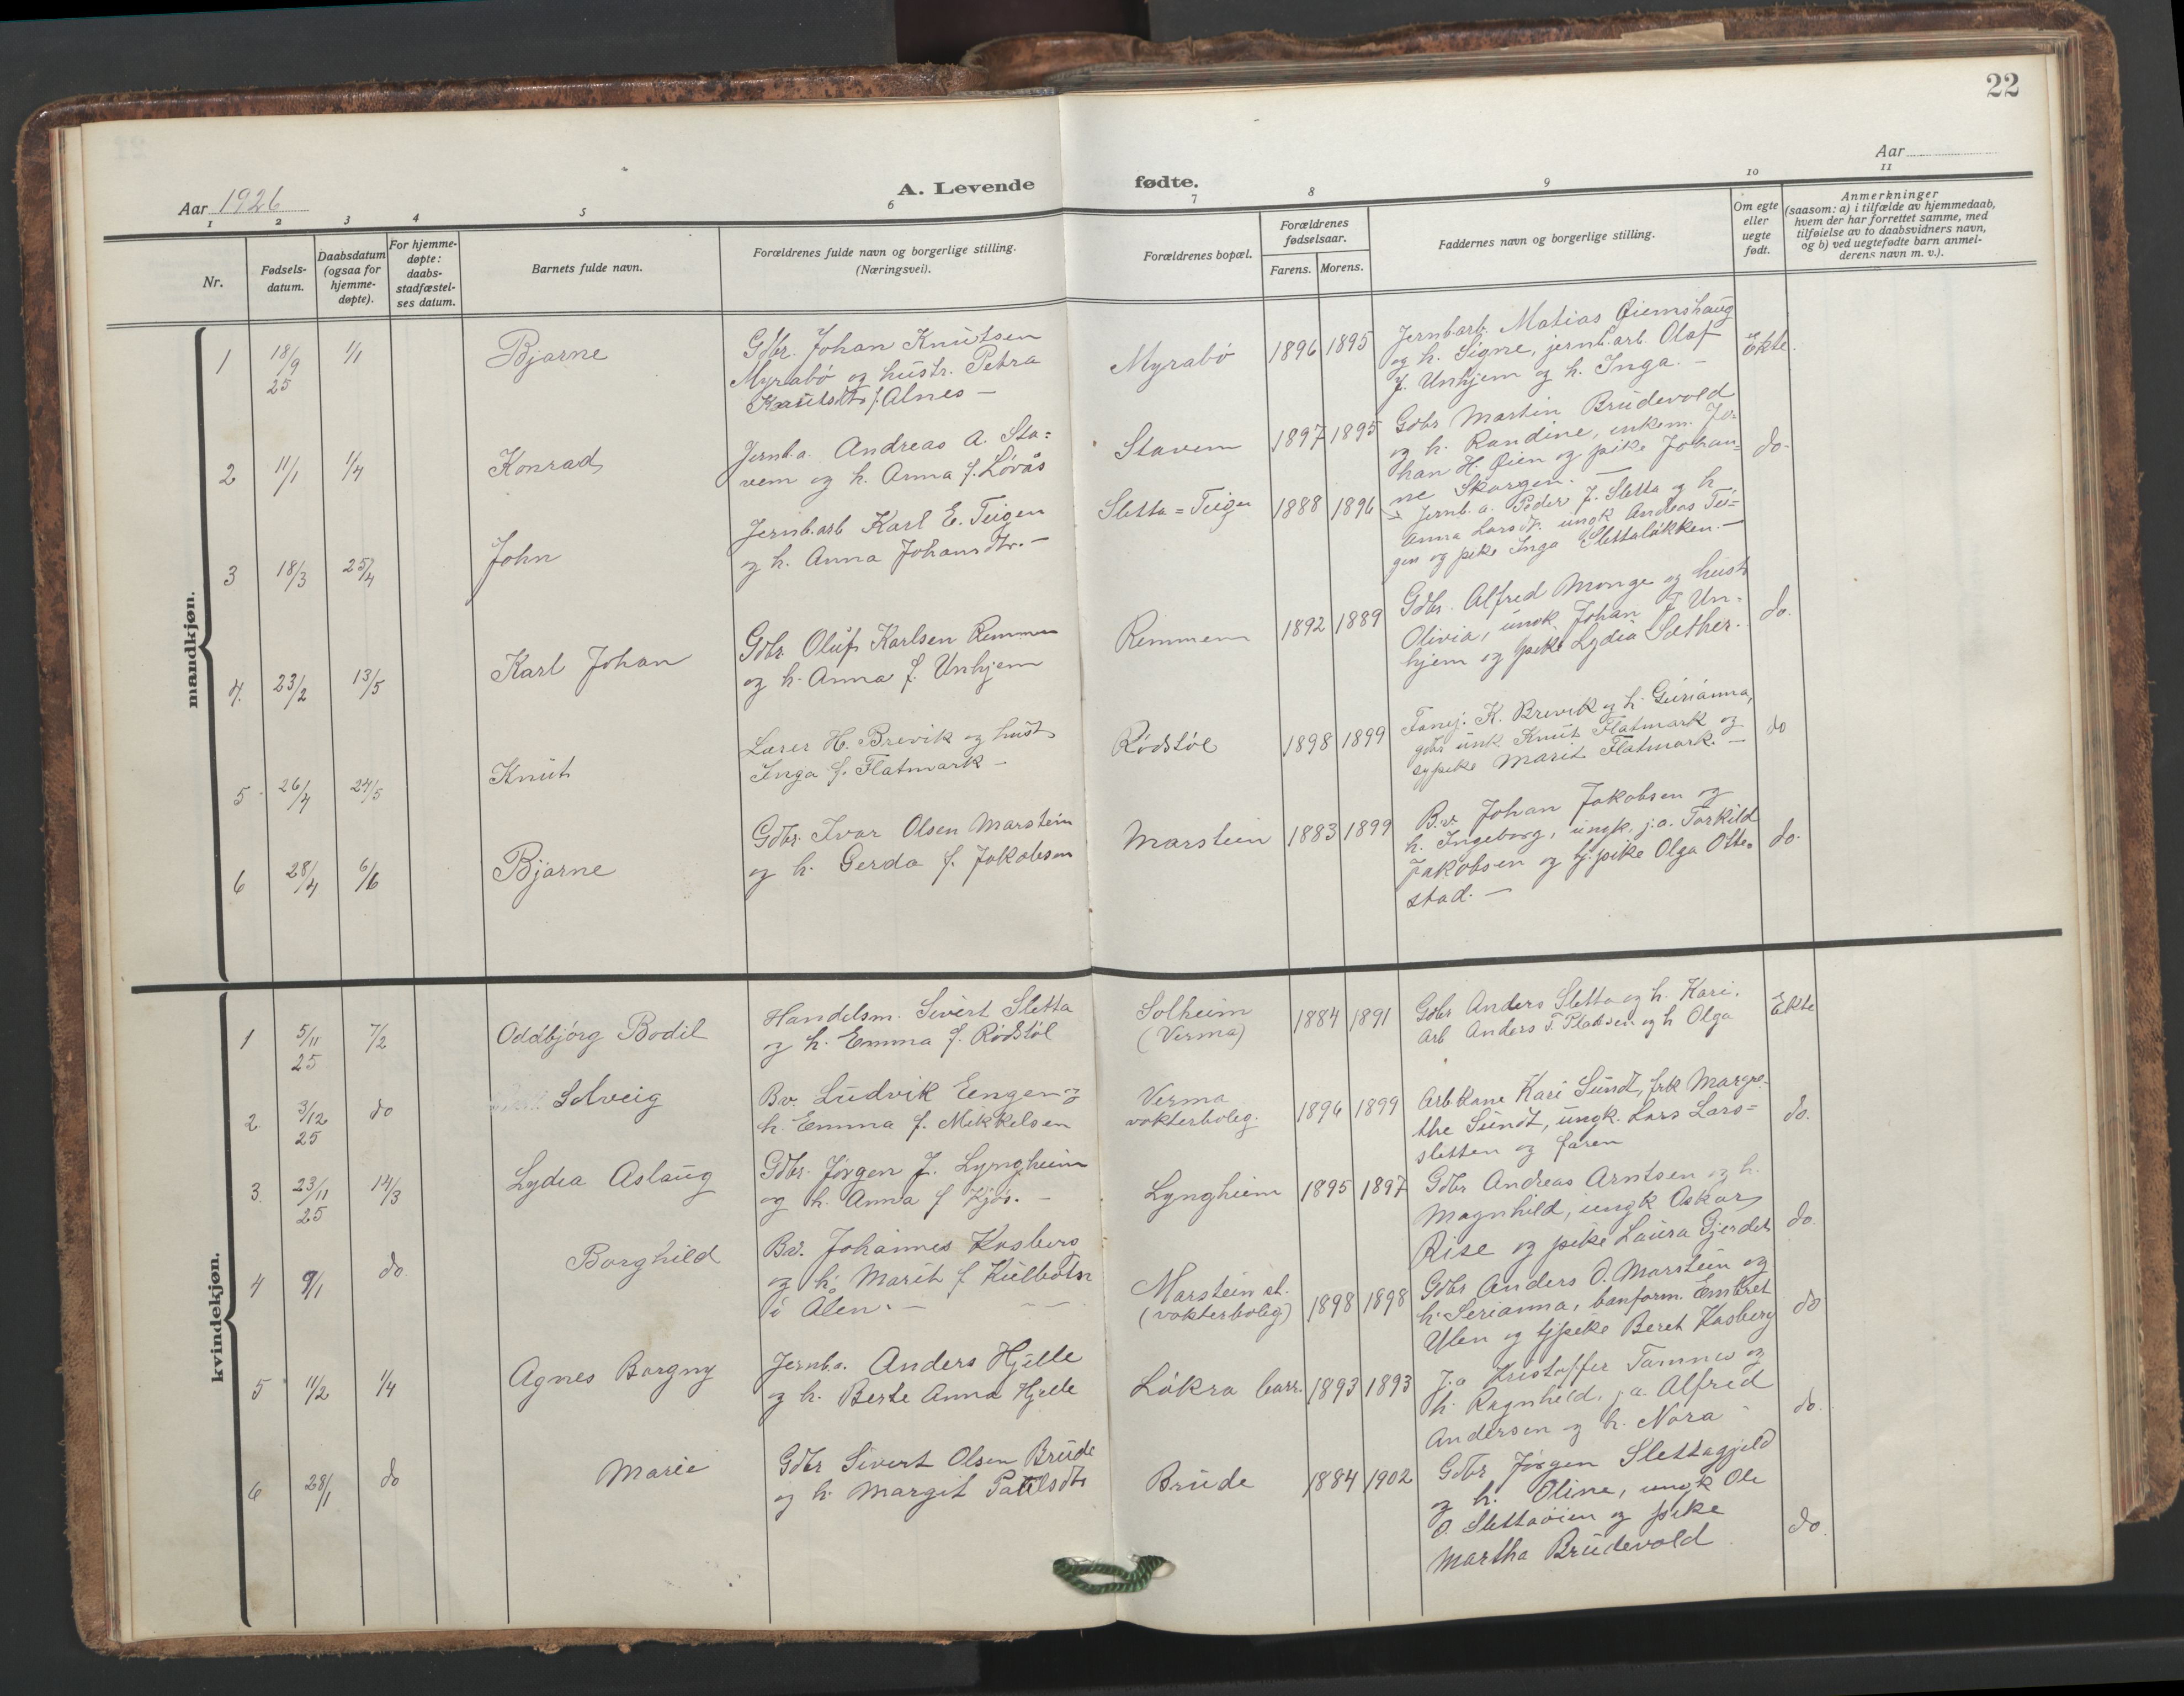 22
Aar 1926
A. Levende fødte.
Aar
1 2 3 4 5 6 7 8 9 10 11
Nr.
Fødsels-
datum.
Daabsdatum
(ogsaa for
hjemme-
døpte).
For hjemme-
døpte:
daabs-
stadfæstel-
ses datum.
Barnets fulde navn.
Forældrenes fulde navn og borgerlige stilling.
(Næringsvei).
Forældrenes bopæl.
Forældrenes
fødselsaar.
Farens. Morens.
Faddernes navn og borgerlige stilling.
Om egte
eller
uegte
født.
Anmerkninger
(saasom: a) i tilfælde av hjemmedaab,
hvem der har forrettet samme, med
tilføielse av to daabsvidners navn,
og b) ved uegtefødte barn anmel-
derens navn m. v.).
mandkjøn.
1 18/9 25 1/1 Bjarne
Gdbr. Johan Knutsen
Myrabø og hustr. Petra
Knutsdtr f. Alnes —
Myrabø 1896 1895
Jernb.arb. Matias Øiemshaug
og h. Signe, jernb.arb. Olaf
J. Unhjem og h. Inga. —
Ekte.
2 11/1 1/4 Konrad
Jernb.a. Andreas A. Sta=
vem og h. Anna f. Løvås
Stavem 1897 1895
Gdbr Martin Brudevold
og h. Randine, enkem. Jo-
han H. Øien og pike Johan=
ne Skorgen. —
do.
3 18/3 25/4 John
Jernb.arb Karl E. Teigen
og h. Anna Johansdtr. —
Sletta = Teigen 1888 1896
Jernb.a. Peder J. Sletta og h.
Anna Larsdtr. ungk Andreas Tei=
gen og pike Inga Slettaløkken. —
4. 23/2 13/5 Karl Johan
Gdbr. Oluf Karlsen Remmem
og h. Anna f. Unhjem
Remmem 1892 1889
Gdbr. Alfred Monge og hustr
Olivia, ungk. Johan J Un-
hjem og pike Lydia Sæther.
do.
5 26/4 24/5 Knut
Lærer H. Brevik og hustr
Inga f. Flatmark —
Rødstøl 1898 1899
K. Brevik og h. Gurianna,
gdbr ungk. Knut Flatmark og
sypike Marit Flatmark. —
do
6 28/4 6/6 Bjarne
Gdbr. Ivar Olsen Marstein
og h. Gerda f. Jakobsen
Marstein 1883 1899
B.v. Johan Jakobsen og
h. Ingeborg, ungk. j.a. Torkild
Jakobsen og tj.pike Olga Otte-
stad. —
do.
kvindekjøn.
1 5/11 25 7/2 Oddbjørg Bodil
Handelsm. Sivert Sletta
og h. Emma f. Rødstøl
Solheim
(Verma)
1884 1891
Gdbr Anders Sletta og h. Kari.
Arb Anders T. Pladsen og h Olga
Ekte
2 3/12 25 do Solveig
Bv. Ludvik Engen og
h. Emma f. Mikkelsen
Verma
vokterbolig
1896 1899
Arb.kone Kari Sundt, frk Margre-
the Sundt, ungk. Lars Lars=
sletten og faren
do.
3 23/11 25 14/3 Lydia Aslaug
Gdbr. Jørgen J. Lyngheim
og h. Anna f Kjøs. —
Lyngheim 1895 1897
Gdbr Andreas Arntsen og h.
Magnhild, ungk Oskar
Rise og pike Laura Gjerdet
do.
4 9/1 do Borghild
Bv. Johannes Kosberg
og h. Marit f
i Ålen. —
Marstein st.
(vokterbolig)
1898 1898
Gdbr Anders O. Marstein og
h. Serianna, banform. Embret
Ulen og tjpike Beret Kosberg
do
5 11/2 1/4 Agnes Borgny
Jernb.a. Anders Hjelle
og h. Berte Anna Hjelle
Løkra barr. 1893 1893
J.a Kristoffer Tømmo og
h. Ragnhild, j.a. Alfred
Andersen og h. Nora —
do.
6 28/1 do Marie
Gdbr Sivert Olsen Brude
og h. Margit Paulsdtr
Brude 1884 1902
Gdbr Jørgen Slettagjeld
og h. Oline, ungk Ole
O. Slettaøien og pike
Martha Brudevold
do.